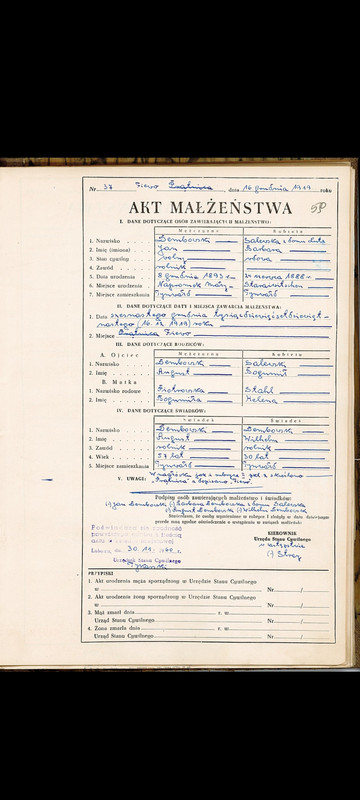 Nr. 37 Fiewo dnia 16 grudnia 1919 roku
AKT MAŁŻEŃSTWA
I. DANE DOTYCZĄCE OSÓB ZAWIERAJĄCYCH MAŁŻEŃSTWO:
Mężczyzna Kobieta
1. Nazwisko Dembowski
2. Imię (imiona) Jan Barbara
3. Stan cywilny wolny
4. Zawód rolnik
5. Data urodzenia 8 grudnia 1888
6. Miejsce urodzenia
7. Miejsce zamieszkania Tynwałd Tynwałd
II. DANE DOTYCZĄCE DATY I MIEJSCA ZAWARCIA MAŁŻEŃSTWA:
1. Data szesnastego grudnia tysiącdziewięćsetdziewięt-
nastego 16. XII 1919 roku
2. Miejsce Fiewo
III. DANE DOTYCZĄCE RODZICÓW:
A. Ojciec Mężczyzna Kobieta
1. Nazwisko Dembowski Zalewski
2. Imię August Bogumił
B. Matka
1. Nazwisko rodowe Piotrowska Stahl
2. Imię Bogumiła Helena
IV. DANE DOTYCZĄCE ŚWIADKÓW:
Świadek Świadek
1. Nazwisko Dembowski Dembowski
2. Imię August Wilhelm
3. Zawód rolnik rolnik
4. Wiek 57 lat 30 lat
5. Miejsce zamieszkania Tynwałd Tynwałd
V. UWAGI:
Podpisy osób zawierających małżeństwo i świadków:
(-) Jan Dembowski (-) Barbara Dembowska z domu Zalewska
(-) August Dembowski (-) Wilhelm Dembowski
Stwierdzam, że osoby wymienione w rubryce I złożyły w dniu dzisiejszym
przede mną zgodne oświadczenia o wstąpieniu w związek małżeński
KIEROWNIK
Urzędu Stanu Cywilnego
w zastępstwie
Poświadczam zgodność
dnia 30.11.
Urzędnik Stanu Cywilnego
PRZYPISKI
1. Akt urodzenia męża sporządzony w Urzędzie Stanu Cywilnego
w Nr /
2. Akt urodzenia żony sporządzony w Urzędzie Stanu Cywilnego
w Nr /
3. Mąż zmarł dnia r. w
Urząd Stanu Cywilnego Nr /
4. Żona zmarła dnia r. w
Urząd Stanu Cywilnego Nr /